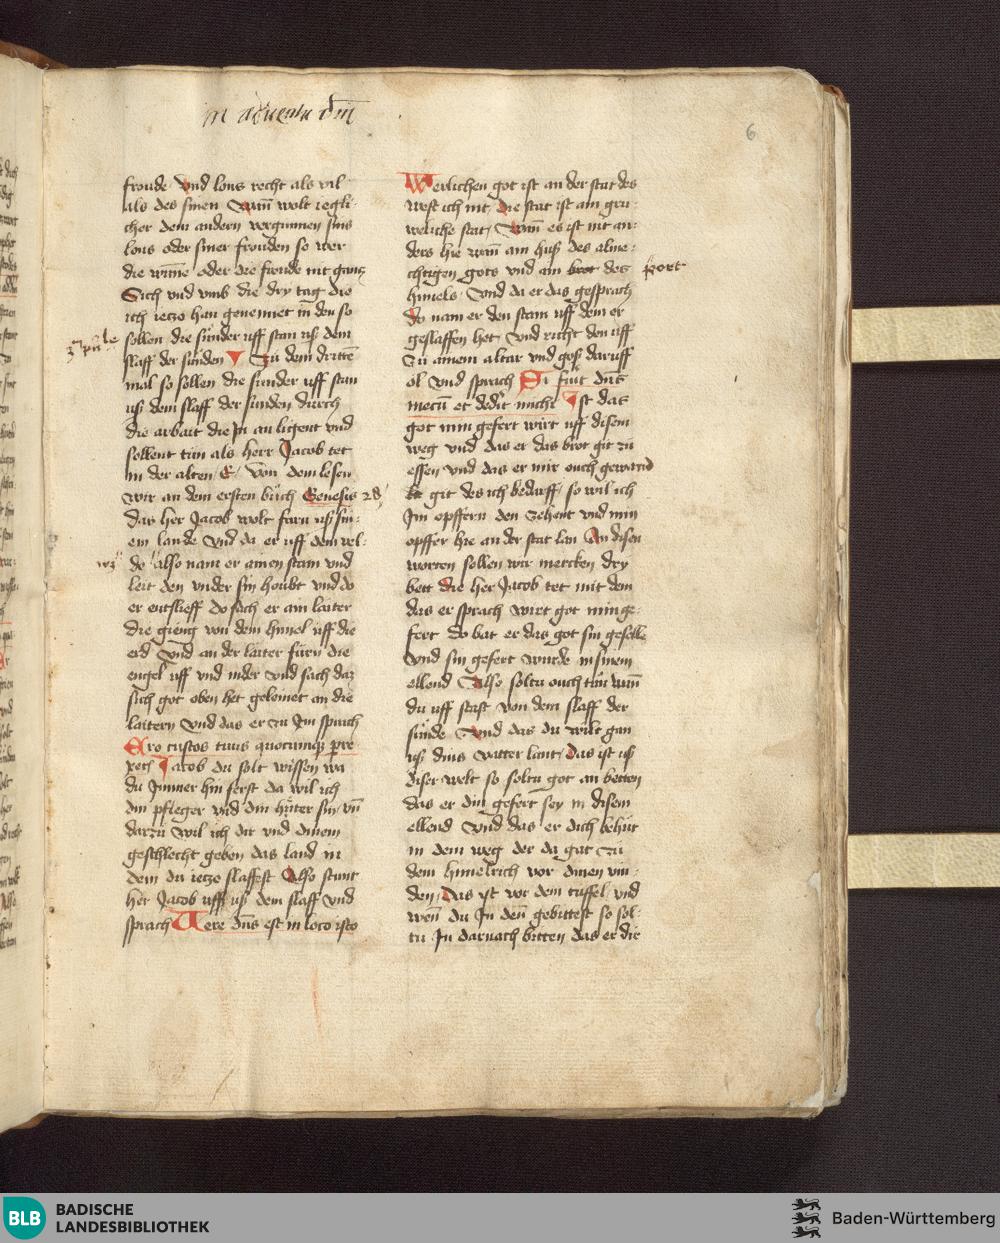 in aduentu dm̄
6
froude vnd lons recht als vil
als des sinen Wan̄ wolt iegli-
cher dem andern vergunnen sins
lons oder siner frouden so wer
die wun̄e oder die froude nit gantz
Sich vnd vmb die dry tag die
ich ietzo han genemet in den so
sollen die sünder uff stan uß dem
slaff der sünden Zu dem dritten̄
mal so sollen die sunder uff stan
uß dem slaff der sunden durch
die arbait die Jn an ligent vnd
sollent tun als herr Jacob tet
in der alten E Von dem lesen
wir an dem ersten bůch Genesis 28
das her Jacob wolt farn uß sin-
em lande Vnd da er uff dem vel-
wz
do also nam er ainen stain vnd
leit den vnder sin houbt vnd do
er entslieff do sach er ain laiter
die gieng von dem himel uff die
erd Vnd an der laiter fürn die
engel uff vnd nider vnd sach daz
sich got oben het gelainet an die
laitern Vnd das er zu Jm sprach
Ero custos tuus quocumq pre
rexeris Jacob du solt wissen wa
du Jmmer hin ferst da wil ich
din pfleger vnd din hüter sin vn̄
darzů wil ich dir vnd dinem
geschlecht geben das land in
dem du ietze slaffest Also stunt
her Jacob uff uß dem slaff vnd
sprach Uere dn̄s est in loco isto
Werlichen got ist an der stat des
west ich nit die stat ist ain gru-
weliche stat Wan̄ es ist nit an-
ders hie wan̄ ain huß des alme-
chtigen gots vnd ain brot des port
himels Vnd da er das gesprach
do nam er den stain uff dem er
geslaffen het Vnd richt den uff
zu ainem altar vnd goß daruff
ol vnd sprach Si fu̍it dn̄s
mecū et dedit michi Jst das
got min gefert wirt uff disem
weg vnd das er das brot git zu
essen vnd das er mir ouch gewand
git des ich bedarff so wil ich
Jm opffern den zehent vnd min
opffer hie an der stat lan An disen
worten sollen wir mercken dry
bett die her Jacob tet mit dem
das er sprach wirt got min ge-
fert do bat er das got sin geselle
vnd sin gefert wurde in sinem
ellend Also soltu ouch tůn wan̄
du uff stast von dem slaff der
sünde Vnd das du wilt gan
uß dins vatter lant das ist uß
diser welt so soltu got an betten
das er din gefert sey in disem
ellend Vnd das er dich behüt
in dem weg der da gat zu
dem himelrich vor dinen vin-
den Das ist vor dem tuffel vnd
wen̄ du Jn den̄ gebittest so sol-
tu Jn darnach bitten das er die
BLB BADISCHE
LANDESBIBLIOTHEK
Baden-Württemberg